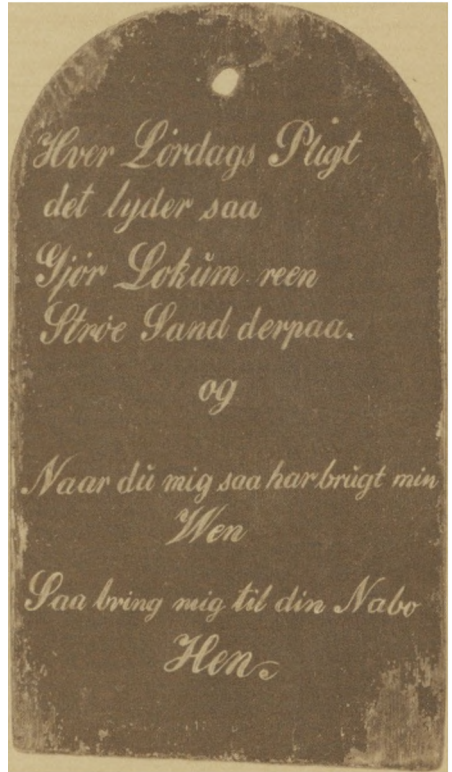 Hver Lördags Pligt
det lyder saa
Gjör Lokŭm reen
Strøe Sand derpaa.
og
Naar dŭ mig saa har brŭgt min
Wen
Saa bring mig til din Nabo
Hen.